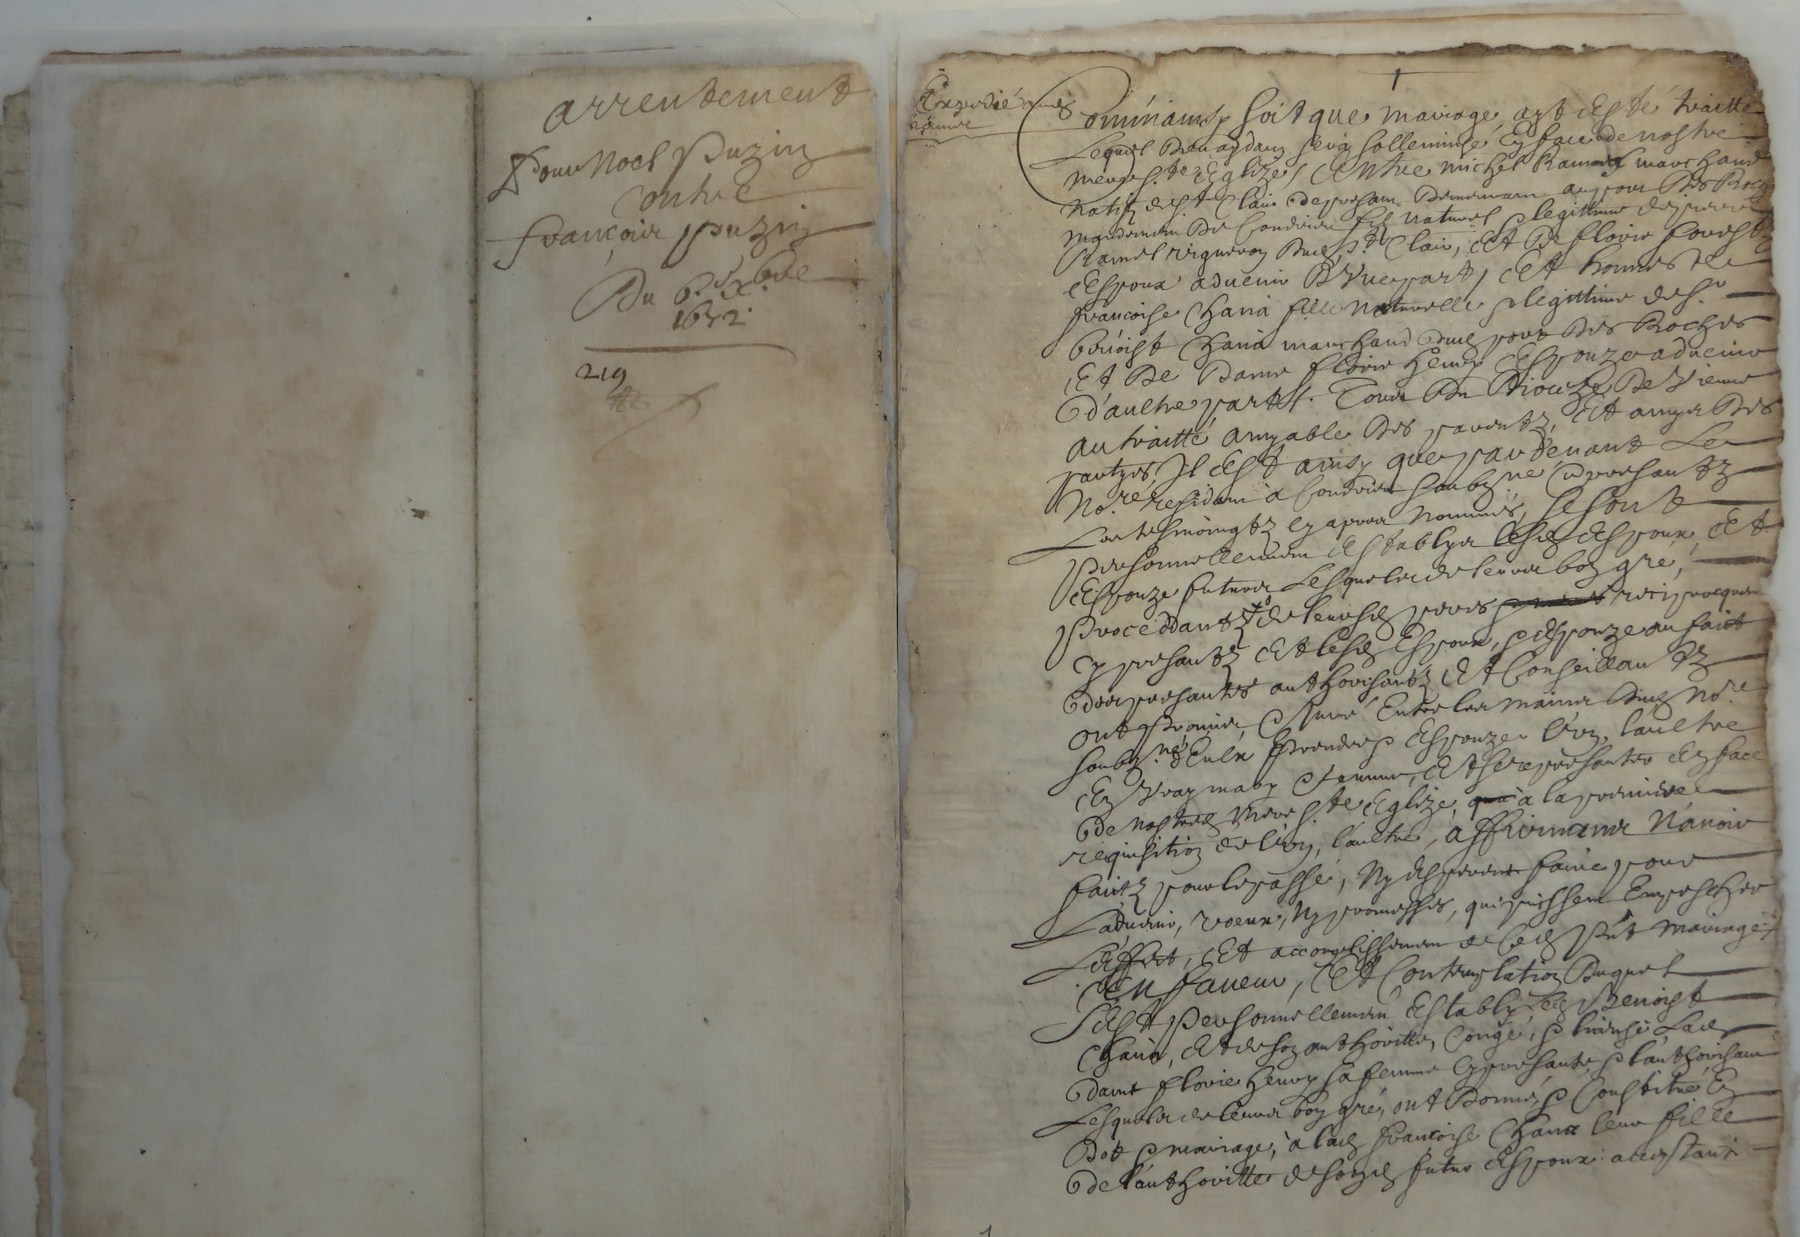 arrentement
Pour Noel Puzin
contre
françois puzin
Du 6.e Xbre
1632.
219
Expedié
Comm'ainsy soit que mariage ayt esté traitté
Lequel Dieu aydant sera sollemnisé en face de nostre
mere s.te Eglize, Entre michel Ramel marchand
natif de st Clair de present demeurant au port des Roches
mandement de Condrieu filz naturel & legittime de pierre
Ramel vigneron dud st Clair, Et de florie forest
Espoux aduenir d'Vne part, Et honneste
francoise Chana fille naturelle & legittime de sr
benoist Chana marchand dud port des Roches
Et De Dame florie henry Espouze aduenir
D'aultre part. Tous Du Dioceze De Vienne
au traitté amyable des parentz, Et amys des
partyes, Il Est ainsy que pardeuant Le
No.re residant à Condrieu soubz.né & presantz
Les tesmoingtz cy apres Nommés, se sont
personnellement Establys lesd Espoux, Et
Espouze futurs Lesquels de leurs bon gré,
Proceddantz de leursd peres reciproquem
cy presantz Et lesd Espoux, & Espouze au fait
des presantes authorisantz Et Conseillantz
ont Promis, & Juré Entre les mains dud No.re
soubz.né d'eulx prendre & Espouzer l'vn, l'aultre
En Vray mary & femme, Et se representer En face
de nostred mere s.te Eglize, à la premiere
requisition de l'vn, l'aultre, affirmant N'auoir
faitz pour le passé, Ny Esperent faire pour
L'aduenir, voeux, Ny promesses, qui puissent Empescher
L'effect, Et accomplissement de Ced pnt mariage,
En faueur, Et Contemplation Duquel
s'est personnellement Estably led Benoist
Chana, Et de son authoritté, Congé, & licence Lad
dame florie henry sa femme cy presante & l'authorisant
Lesquels de leurs bon gré, ont Donné, & Constitué En
Dot & mariage, à lad francoise Chana leur fille
De l'authoritté de sond futur Espoux acceptant